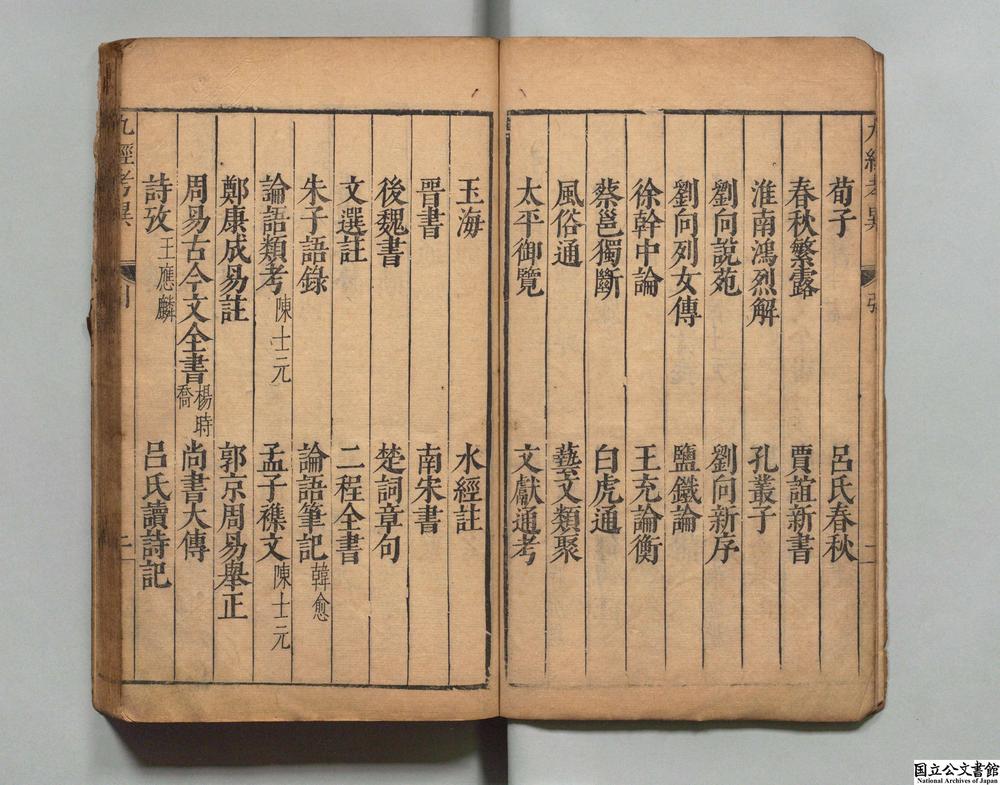 荀子 呂氏春秋
春秋繁露 賈誼新書
淮南鴻烈解 孔叢子
劉向說苑 劉向新序
劉向列女傳 鹽鐵論
徐幹中論 王充論衡
蔡邕獨斷 白虎通
風俗通 藝文類聚
太平御覽 文獻通考
玉海 水經註
晋書 南宋書
後魏書 楚詞章句
文選註 二程全書
朱子語錄 論語筆記 韓愈
論語類考 陳士元 孟子襍文 陳士元
鄭康成易註 郭京周易舉正
周易古今文全書 楊時喬 尚書大傳
詩攷 王應麟 呂氏讀詩記
九經考異
国立公文書館
National Archives of Japan